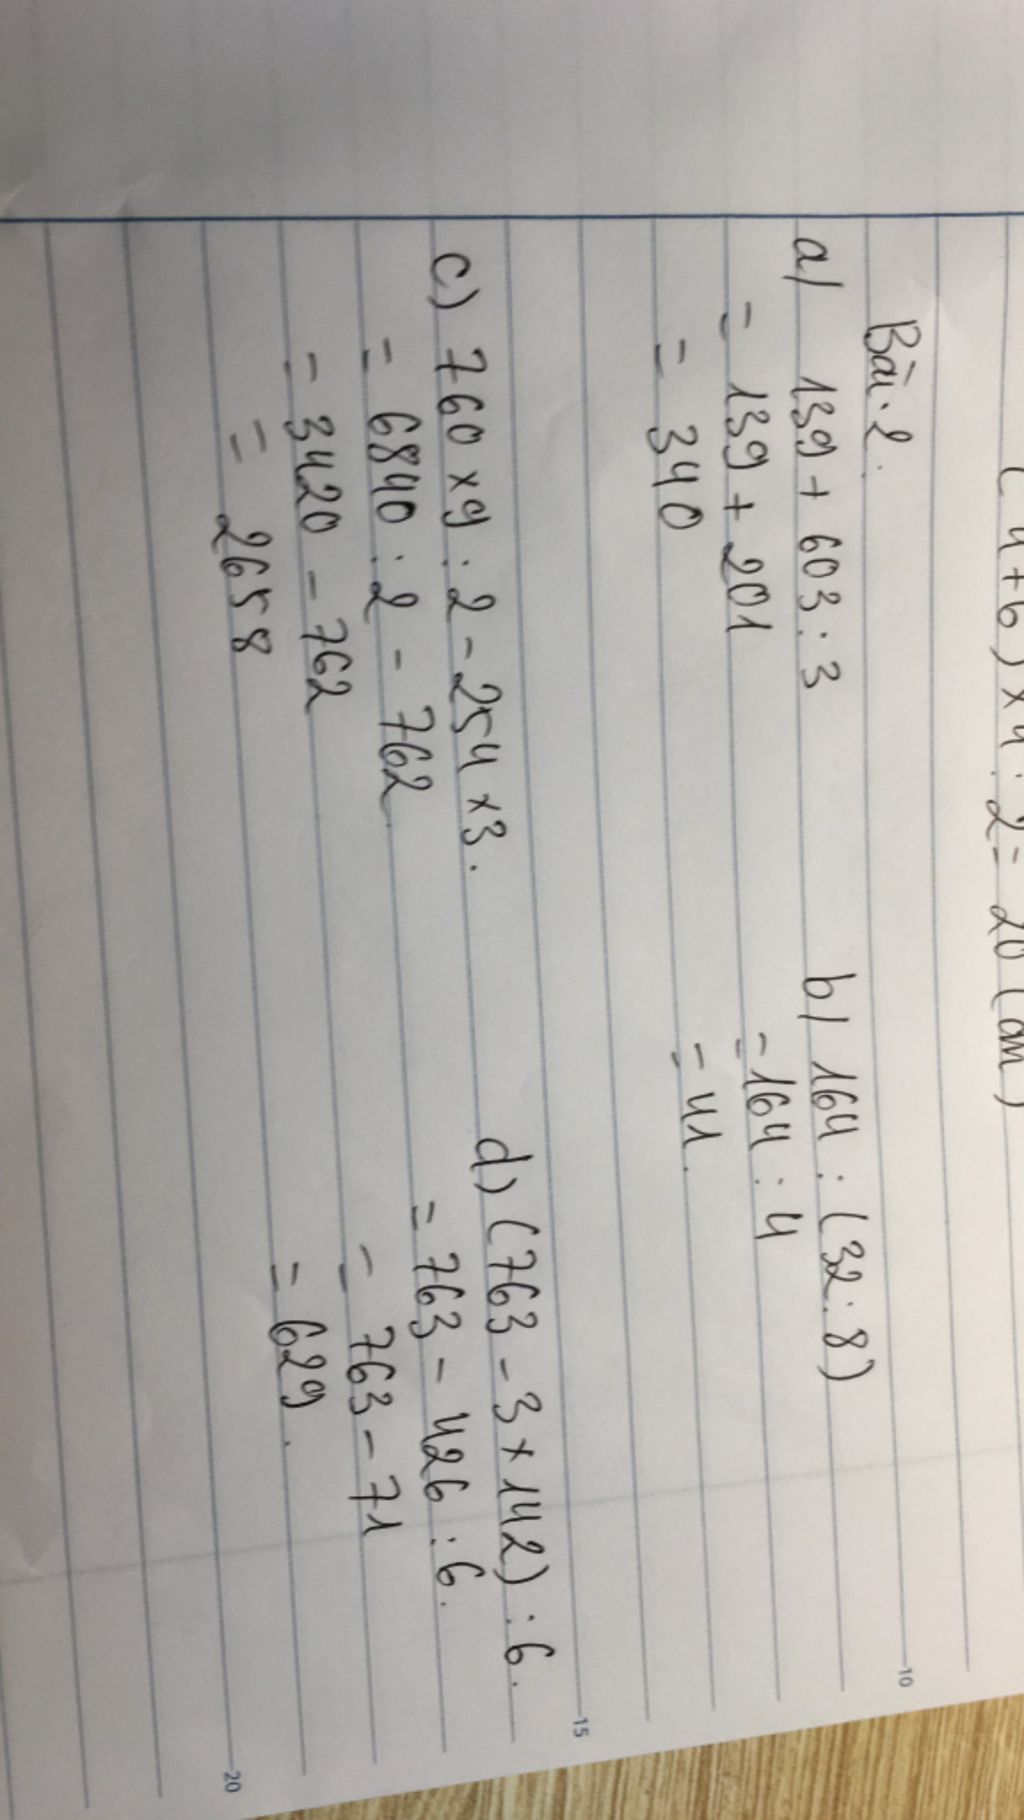 (4+6) x 4 : 2 = 20 (cm)
Bài 2.
a/ 139 + 603 : 3
= 139 + 201
= 340
b/ 164 : (32 : 8)
= 164 : 4
= 41.
c) 760 x 9 : 2 - 254 x 3.
= 6840 : 2 - 762
= 3420 - 762
= 2658
d) (763 - 3 x 142) : 6.
= 763 - 426 : 6.
= 763 - 71
= 629.
10
15
20